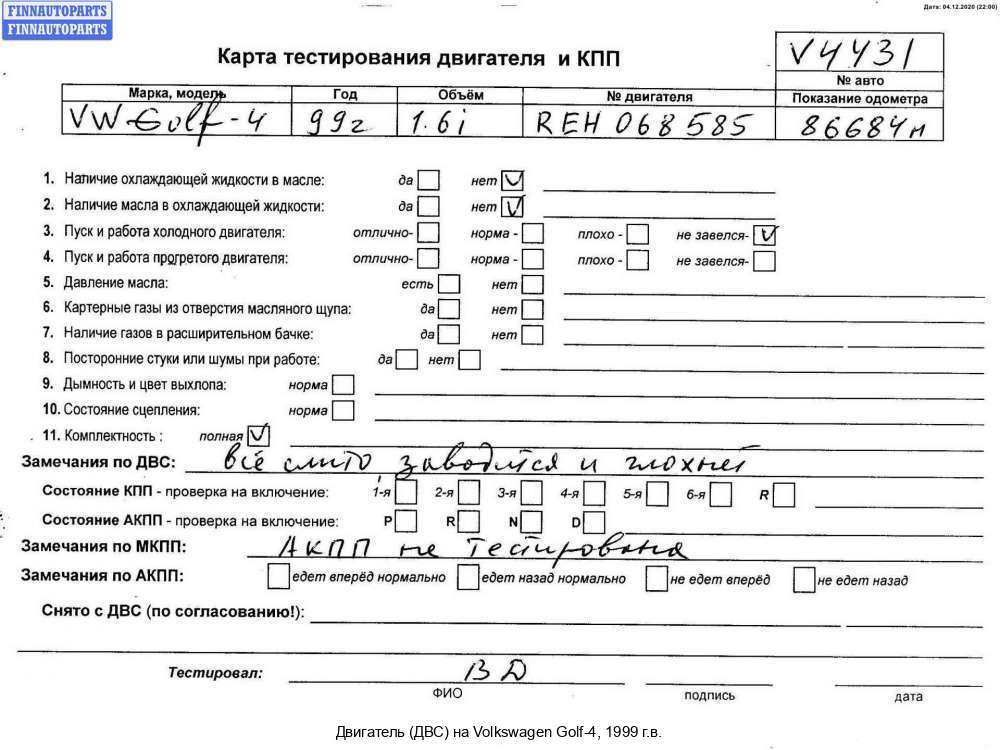 FINNAUTOPARTS
FINNAUTOPARTS
Дата: 04.12.2020 (22:00)
Карта тестирования двигателя и КПП
V4431
№ авто
Марка, модель Год Объём № двигателя Показание одометра
VW Golf-4 99г 1.6i REH 068 585 86684 м
1. Наличие охлаждающей жидкости в масле: да нет
2. Наличие масла в охлаждающей жидкости: да нет
3. Пуск и работа холодного двигателя: отлично- норма - плохо - не завелся-
4. Пуск и работа прогретого двигателя: отлично- норма - плохо - не завелся-
5. Давление масла: есть нет
6. Картерные газы из отверстия масляного щупа: да нет
7. Наличие газов в расширительном бачке: да нет
8. Посторонние стуки или шумы при работе: да нет
9. Дымность и цвет выхлопа: норма
10. Состояние сцепления: норма
11. Комплектность : полная
Замечания по ДВС: всё слито заводится и глохнет
Состояние КПП - проверка на включение: 1-я 2-я 3-я 4-я 5-я 6-я R
Состояние АКПП - проверка на включение: P R N D
Замечания по МКПП: АКПП не тестирована
Замечания по АКПП: едет вперёд нормально едет назад нормально не едет вперёд не едет назад
Снято с ДВС (по согласованию!):
Тестировал: ВД
ФИО подпись дата
Двигатель (ДВС) на Volkswagen Golf-4, 1999 г.в.